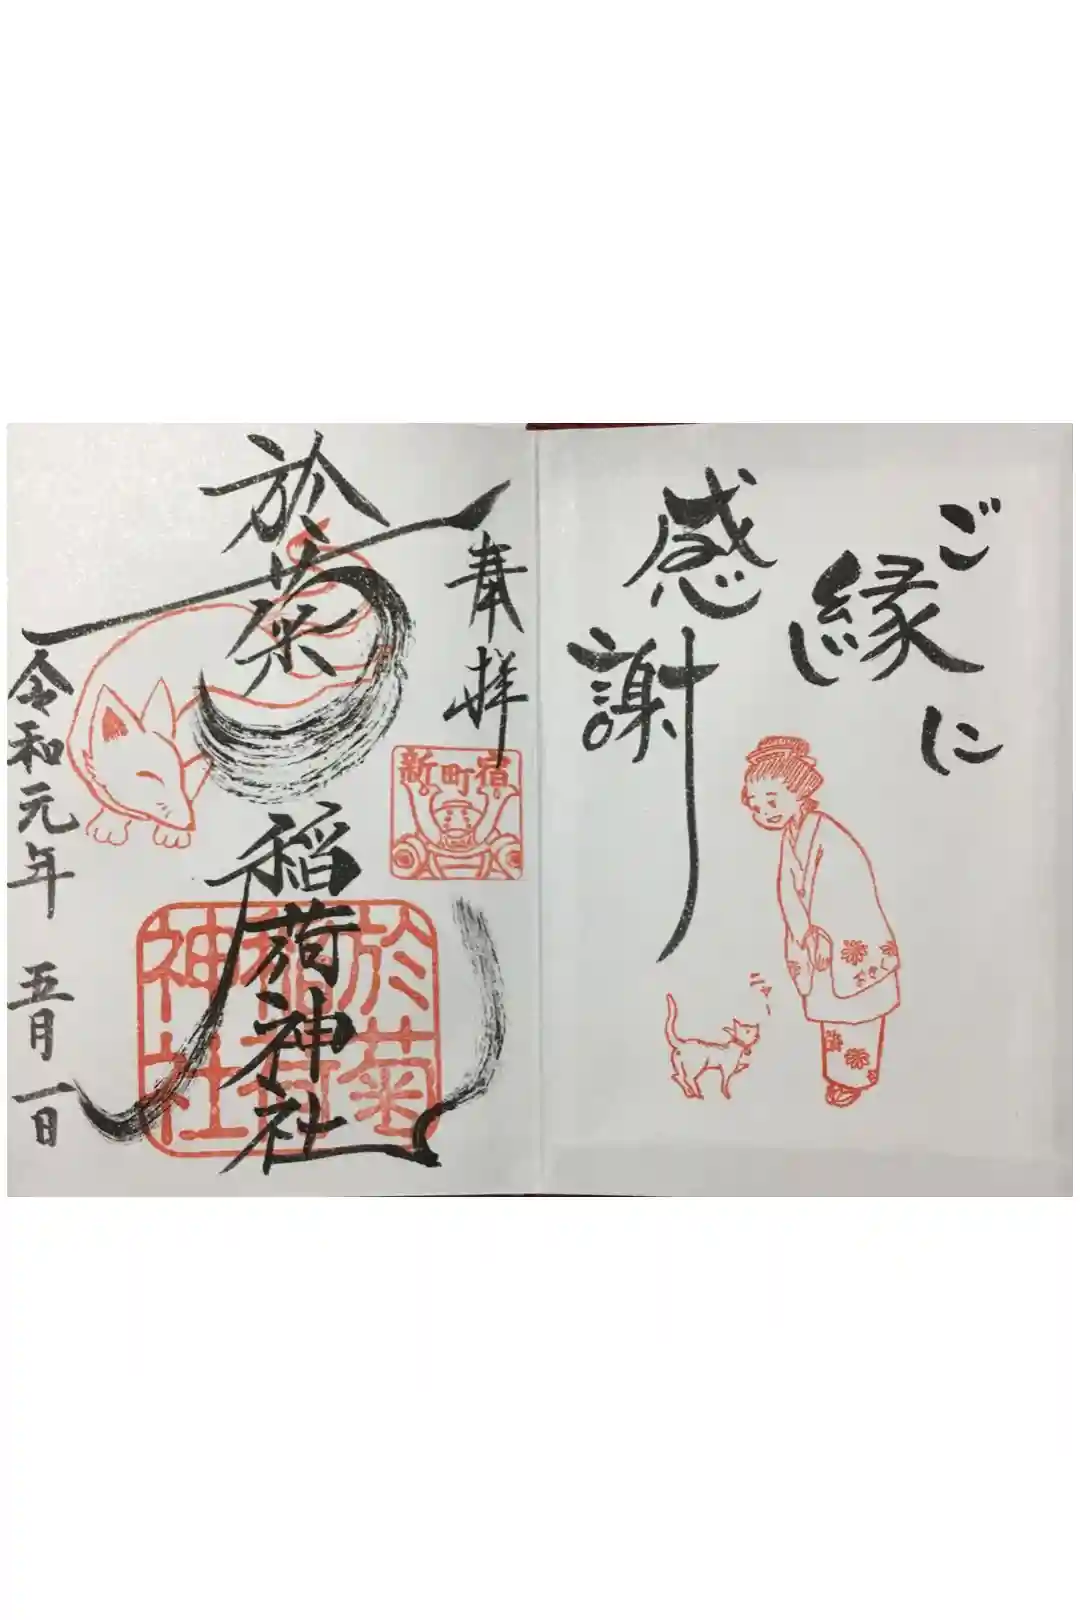 ご縁に
感謝
ニャー
おきく
奉拝
新町宿
於菊稲荷神社
於菊
稲荷
神社
令和元年 五月一日